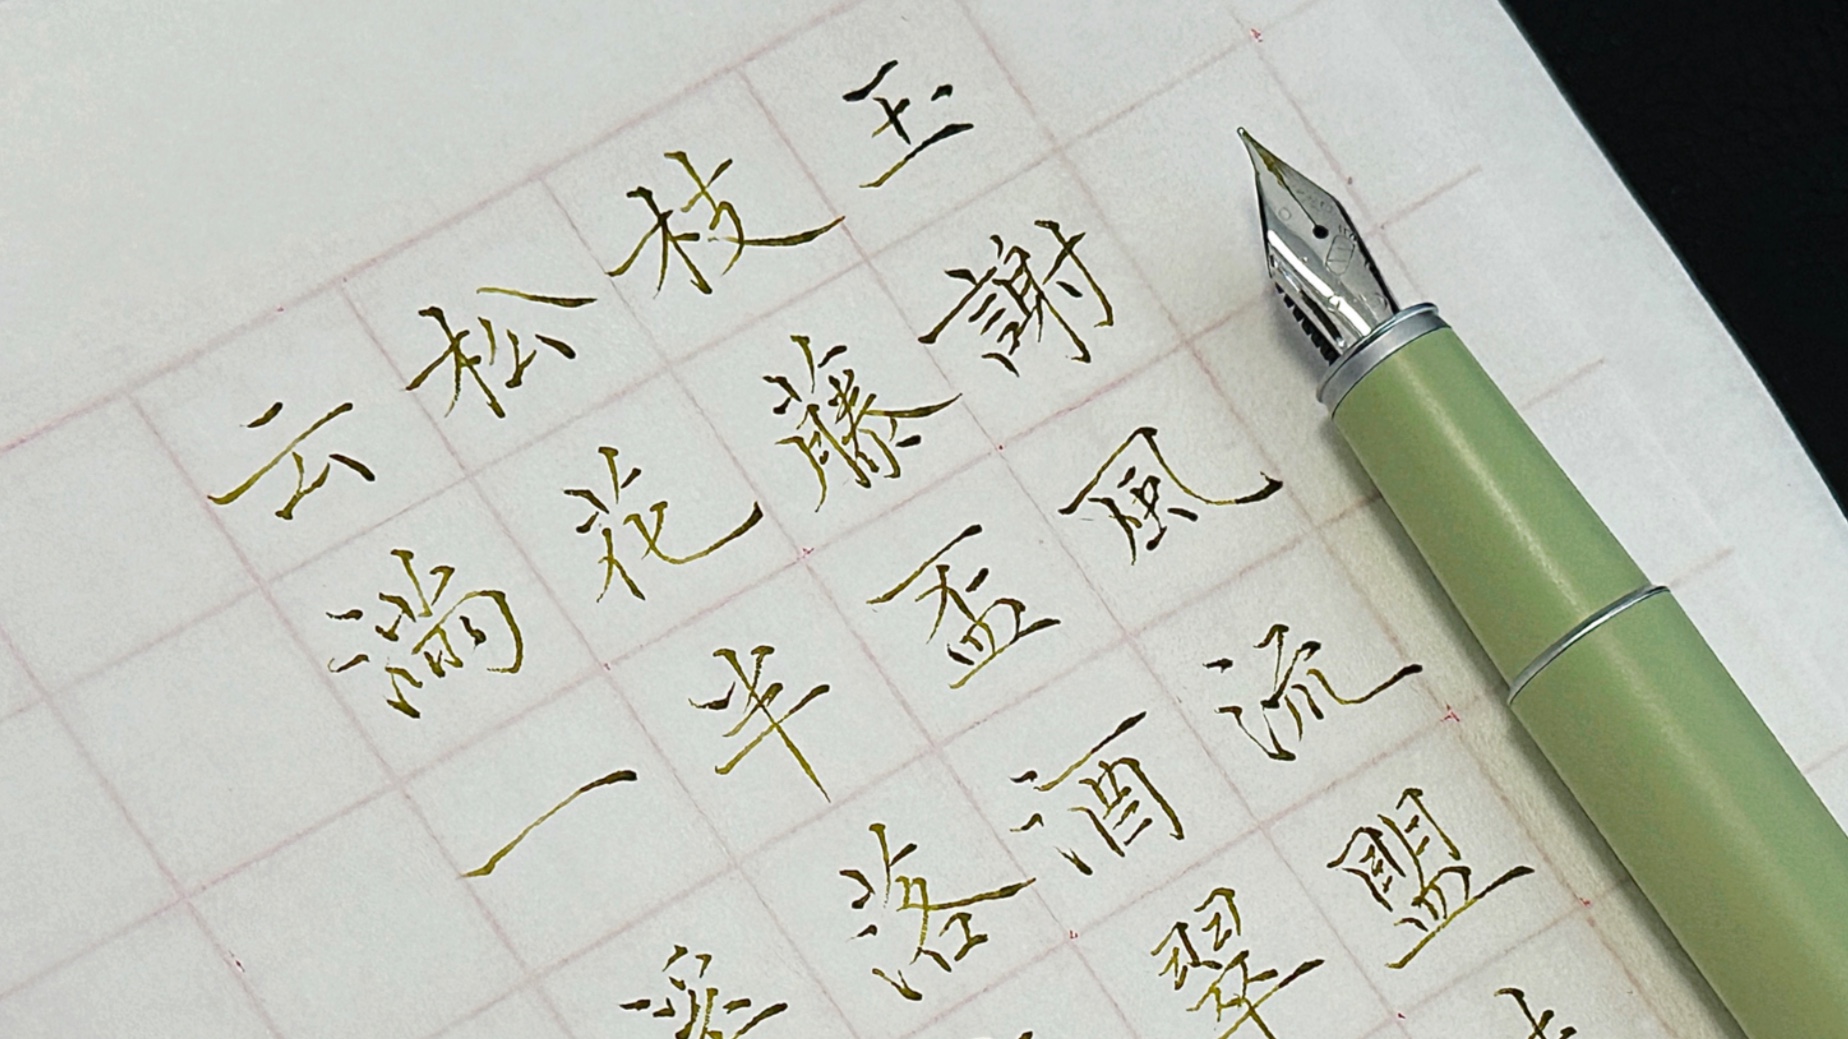 玉謝風流盟
枝藤盃酒翠
松花半落
云滿一